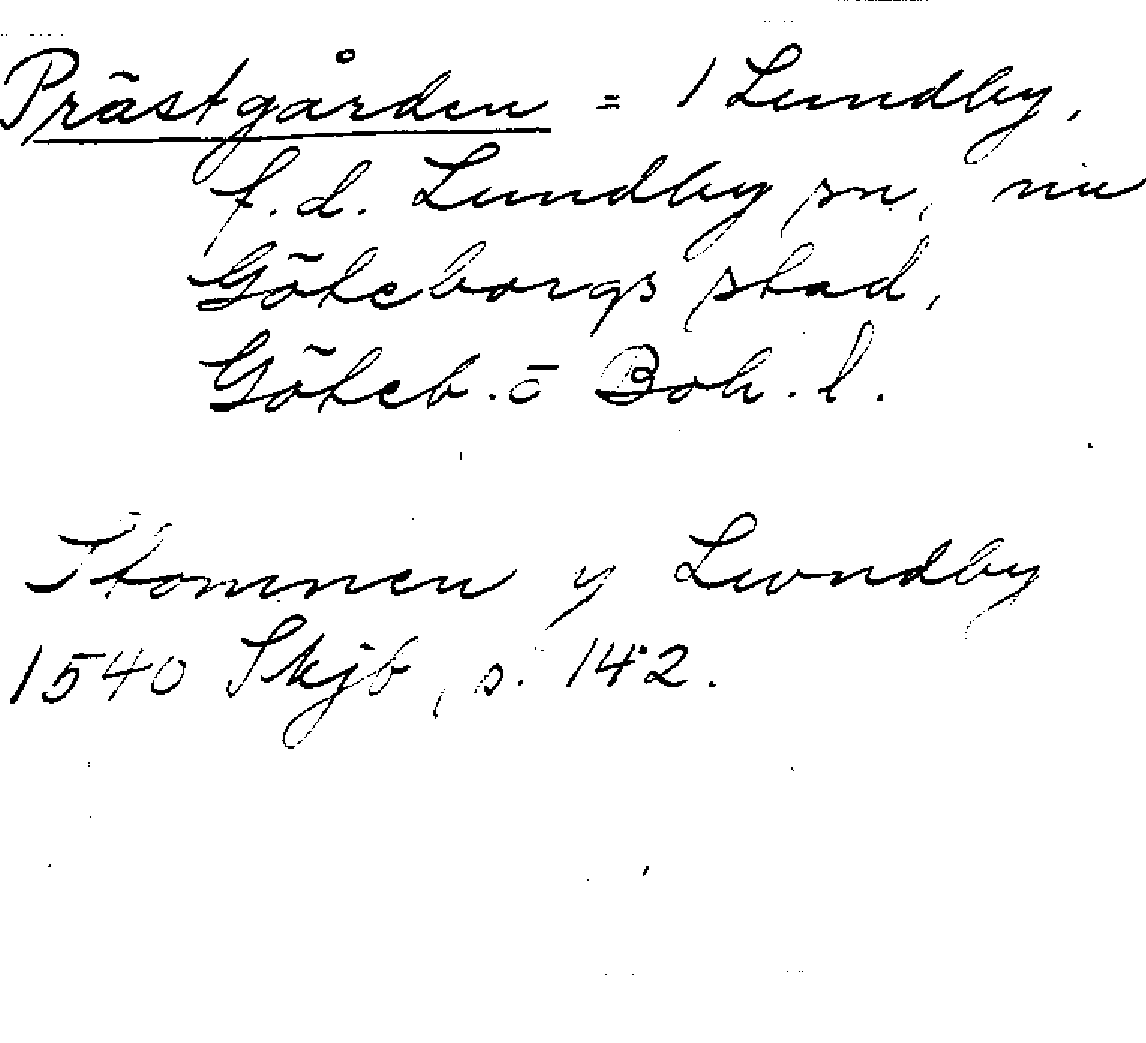 Prästgården = 1 Lundby,
f.d. Lundby sn, nu
Göteborgs stad,
Göteb. o Boh. l.
Stomnen y Lwndby
1540 Skjb, s. 142.